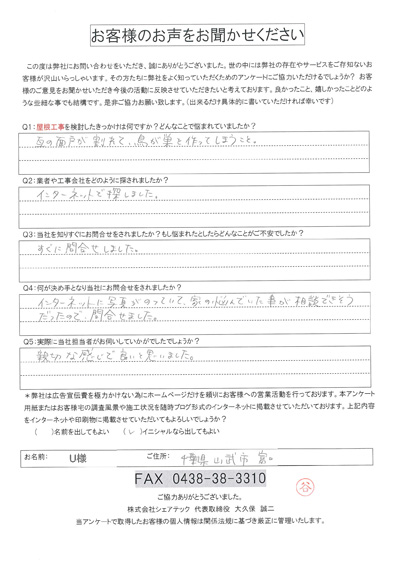 お客様のお声をお聞かせください
この度は弊社にお問い合わせをいただき、誠にありがとうございました。世の中には弊社の存在やサービスをご存知ないお
客様が沢山いらっしゃいます。その方たちに弊社をよく知っていただくためのアンケートにご協力いただけるでしょうか？ お客
様のご意見をお聞かせいただき今後の活動に反映させていただきたいと考えております。良かったこと、嬉しかったことどのよ
うな些細な事でも結構です。是非ご協力お願い致します。(出来るだけ具体的に書いていただければ幸いです)
Q1：屋根工事を検討したきっかけは何ですか？どんなことで悩まれていましたか？
瓦の面戸が割れて、鳥が巣を作ってしまうこと。
Q2：業者や工事会社をどのように探されましたか？
インターネットで探しました。
Q3：当社を知りすぐにお問合せをされましたか？もし悩まれたとしたらどんなことがご不安でしたか？
すぐに問合せしました。
Q4：何が決め手となり当社にお問合せをされましたか？
インターネットに写真がのっていて、家の悩んでいた事が相談できそう
だったので、問合せました。
Q5：実際に当社担当者がお伺いしていかがでしたでしょうか？
親切な感じで良いと思いました。
＊弊社は広告宣伝費を極力かけない為にホームページだけを頼りにお客様への営業活動を行っております。本アンケート
用紙またはお客様宅の調査風景や施工状況を随時ブログ形式のインターネットに掲載させていただいております。上記内容
をインターネットや印刷物に掲載させていただいてもよろしいでしょうか？
（　）名前を出してもよい　（レ）イニシャルなら出してもよい
お名前： U様 ご住所： 千葉県山武市富口
FAX 0438-38-3310
谷
ご協力ありがとうございました。
株式会社シェアテック 代表取締役 大久保 誠二
当アンケートで取得したお客様の個人情報は関係法規に基づき厳正に管理いたします。